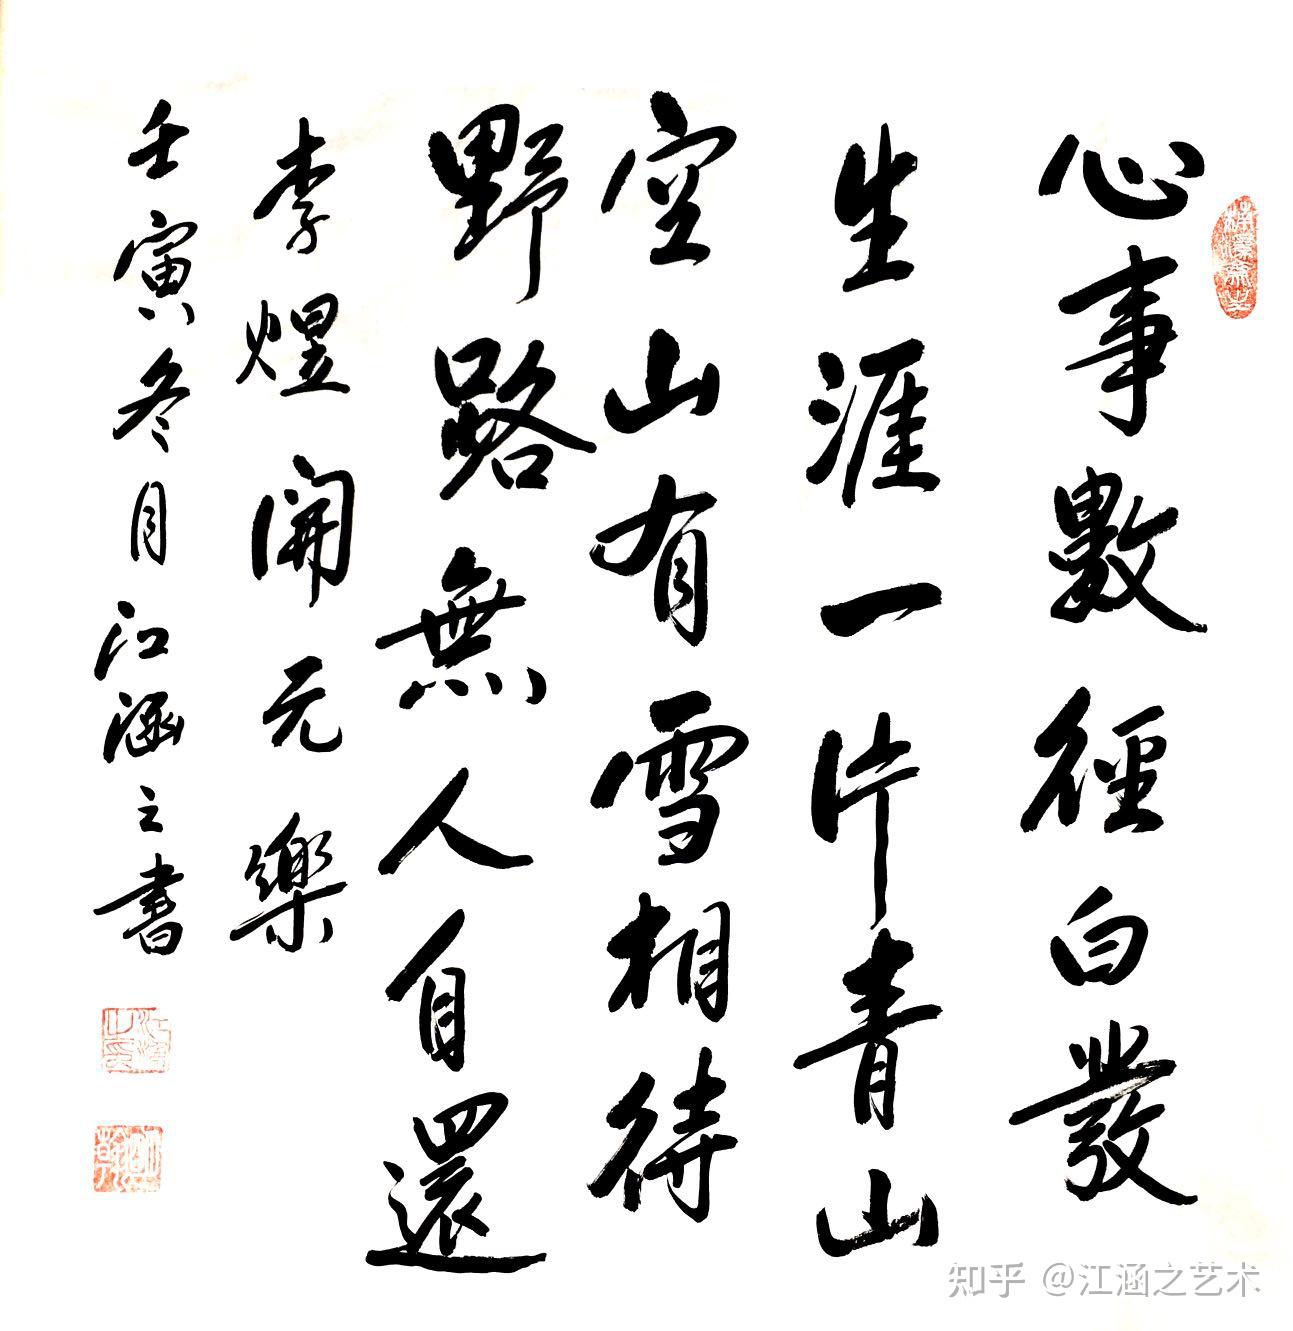 心事數徑白發
生涯一片青山
空山有雪相待
野路無人自還
李煜開元樂
壬寅冬月江涵之書
知乎 @江涵之艺术